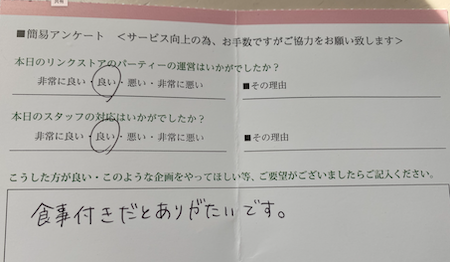 ■簡易アンケート ＜サービス向上の為、お手数ですがご協力をお願い致します＞
本日のリンクストアのパーティーの運営はいかがでしたか？
非常に良い・良い・悪い・非常に悪い ■その理由
本日のスタッフの対応はいかがでしたか？
非常に良い・良い・悪い・非常に悪い ■その理由
こうした方が良い・このような企画をやってほしい等、ご要望がございましたらご記入ください。
食事付きだとありがたいです。